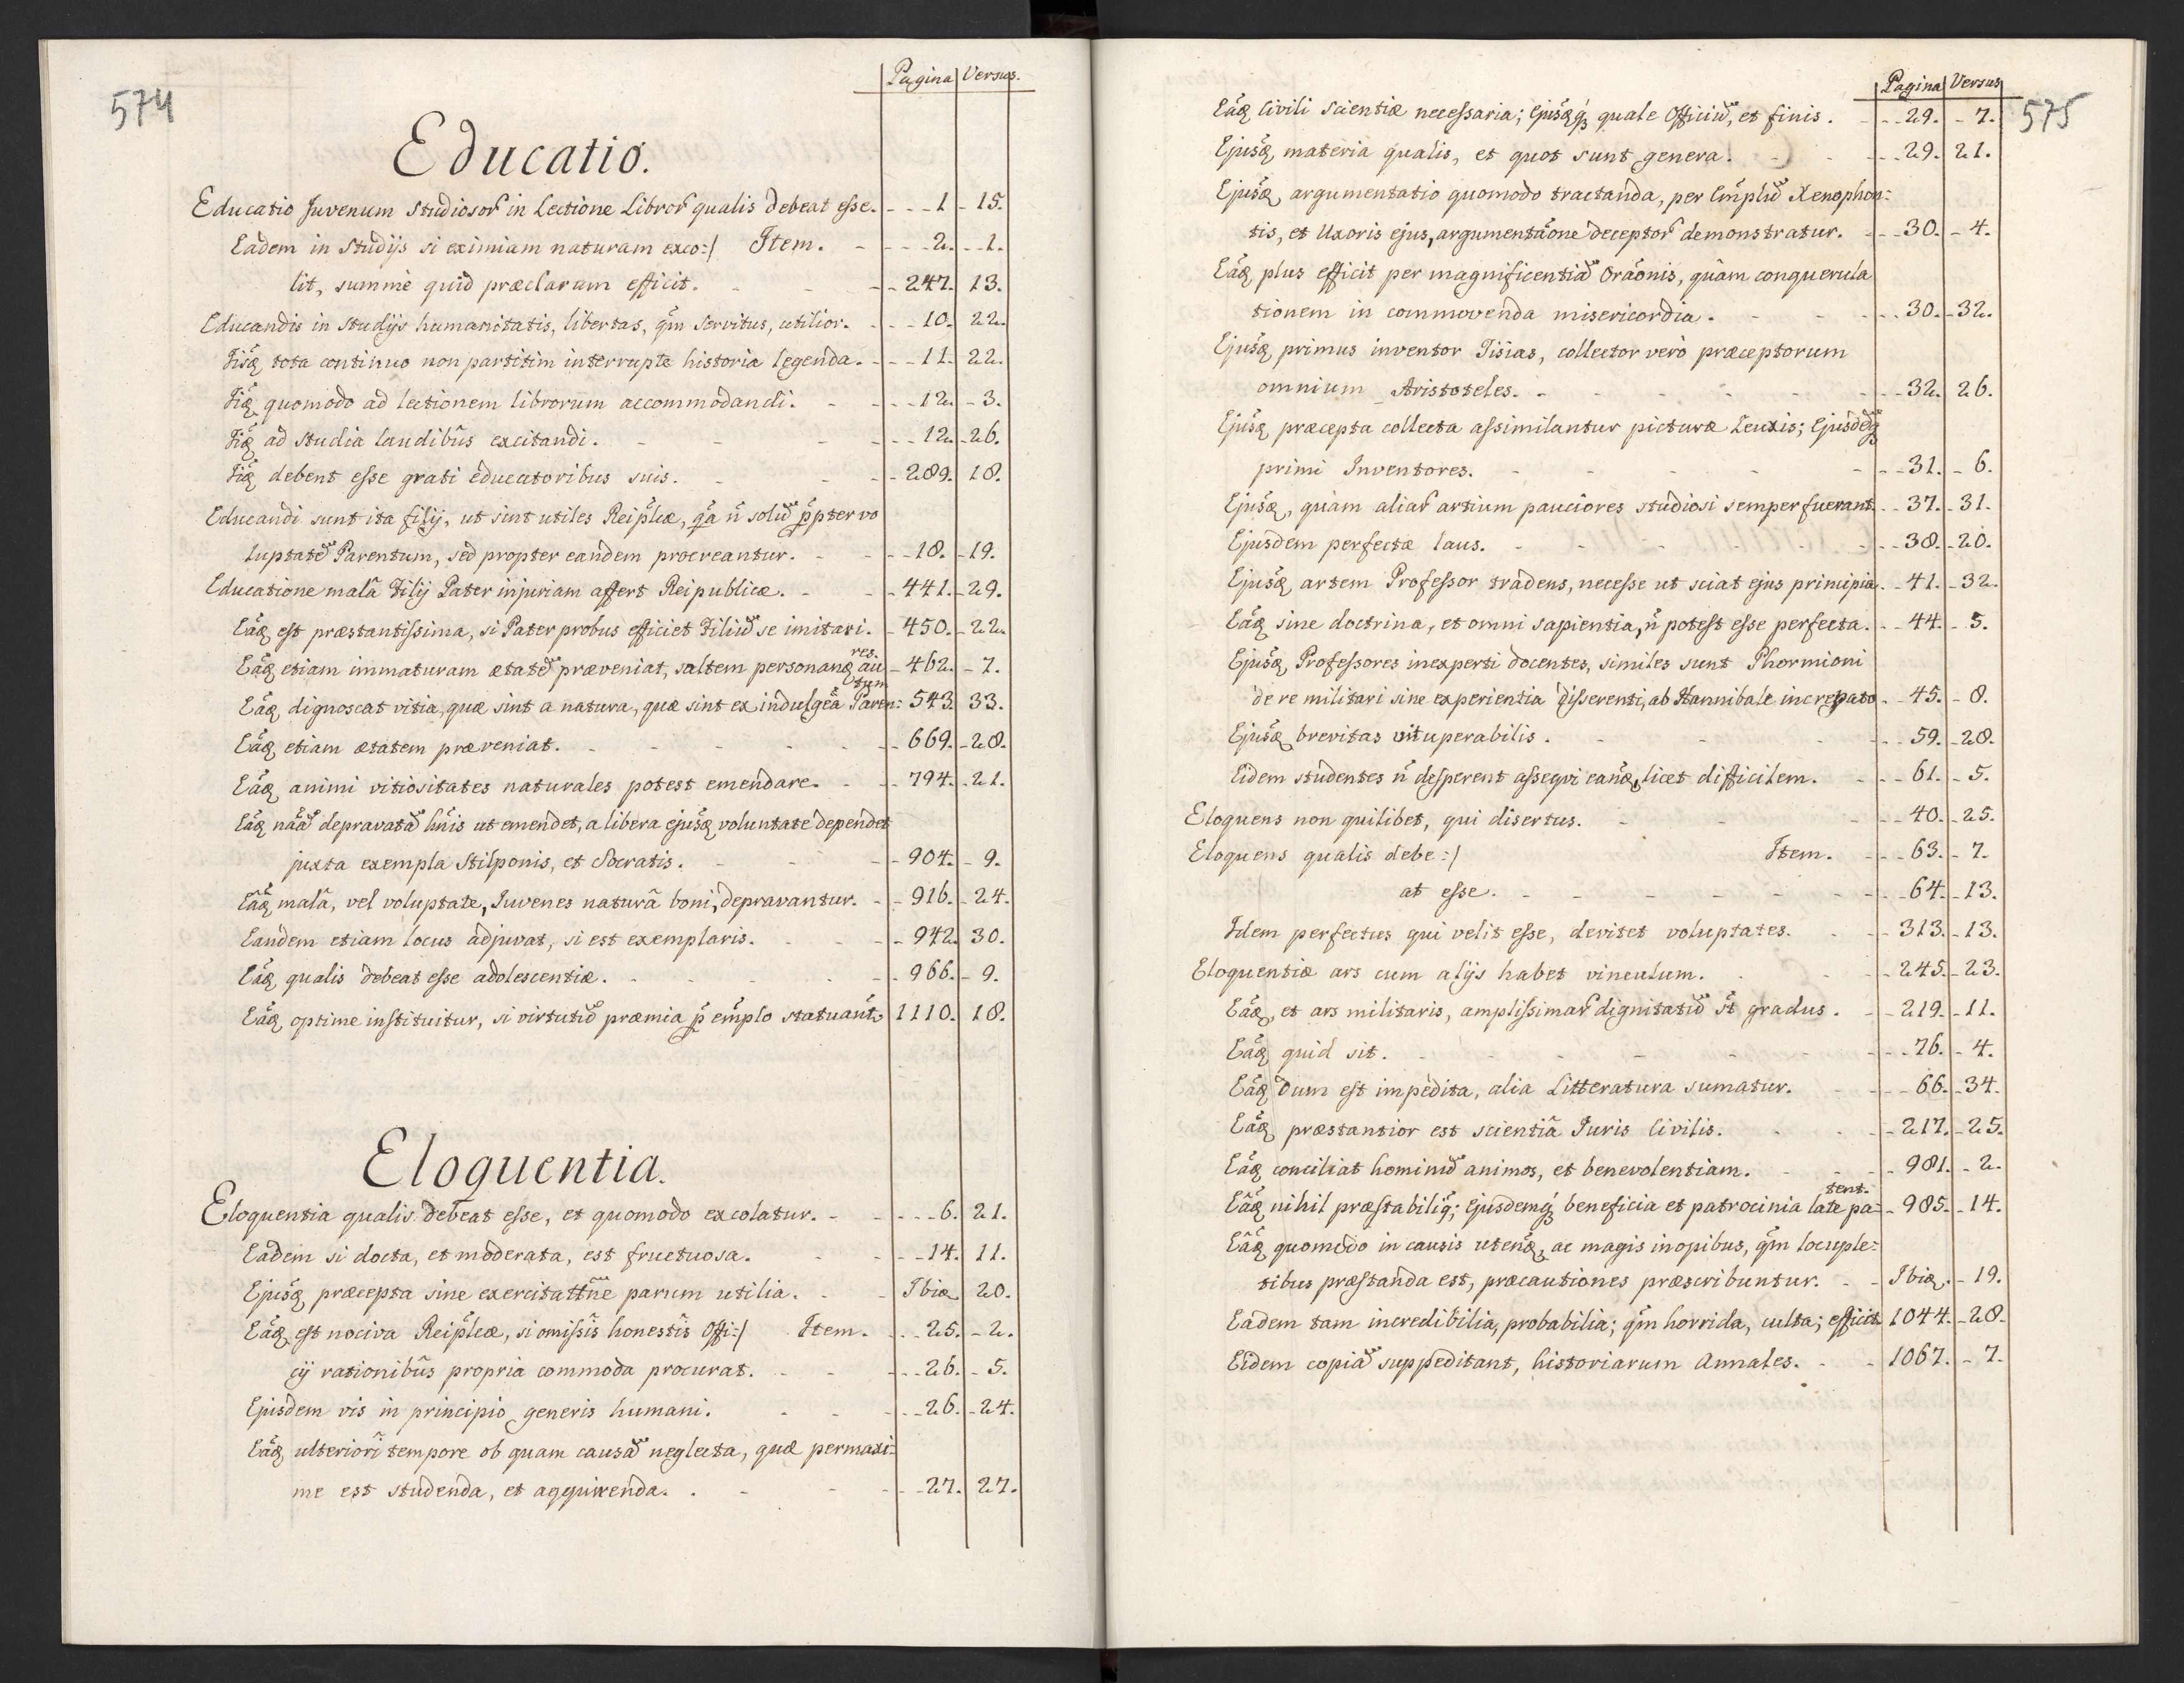 574
Pagina Versus.
Educatio.
Educatio Juvenum Studiosor in Lectione Libror qualis debeat esse. 1 15.
Eadem in Studijs si eximiam naturam exco:/ Item. 2. 1.
lit, summè quid præclarum efficit. 247. 13.
Educandis in studijs humanitatis, libertas, qm̃ servitus, utilior. 10. 22.
Iisq tota continuo non partitim interrupta historia legenda. 11. 22.
Iiq quomodo ad lectionem librorum accommodandi. 12. 3.
Iiq ad studia laudibũs excitandi. 12. 26.
Iiq debent esse grati educatoribus suis. 289. 18.
Educandi sunt ita filij, ut sint utiles Reiplcæ, qa ñ soliu ppter vo
luptate Parentum, sed propter eandem procreantur. 18. 19.
Educatione malâ Filij Pater injuriam affert Reipublicæ. 441. 29.
Eaq est præstantissima, si Pater probus efficiet Filiu se imitari. 450. 22.
Eaq etiam immaturam ætate præveniat, saltem personanq au 462. 7.
res.
Eaq dignoscat vitia, quæ sint a natura, quæ sint ex indulgea Paren: 543. 33.
tum
Eaq etiam ætatem præveniat. 669. 28.
Eaq animi vitiositates naturales potest emendare. 794. 21.
Eaq nãa depravata hnis ut emendet, a libera ejusq voluntate dependet
juxta exempla Stilponis, et Socratis. 904. 9.
Eâq malâ, vel voluptate, Juvenes naturâ boni, depravantur. 916. 24.
Eandem etiam locus adjuvat, si est exemplaris. 942. 30.
Eaq qualis debeat esse adolescentiæ. 966. 9.
Eaq optime instituitur, si virtutiu præmia p emplo statuant. 1110. 18.
Eloquentia.
Eloquentia qualis debeat esse, et quomodo excolatur. 6. 21.
Eadem si docta, et moderata, est fructuosa. 14. 11.
Ejusq præcepta sine exercitattne parum utilia. Ibiq 20.
Eaq est nociva Reiplcæ, si omissis honestis Offi:/ Item. 25. 2.
cij rationibũs propria commoda procurat. 26. 5.
Ejusdem vis in principio generis humani. 26. 24.
Eaq ulteriori tempore ob quam causa neglecta, quæ permaxi:
me est studenda, et acquirenda. 27. 27.
Pagina Versus
575
Eaq Civili Scientiæ necessaria; Ejusqq quale Officiu, et finis. 29. 7.
Ejusq materia qualis, et quot sunt genera. 29. 21.
Ejusq argumentatio quomodo tractanda, per Emplu Xenophon:
tis, et Uxoris ejus, argumentãone deceptor demonstratur. 30. 4.
Eaq plus efficit per magnificentia Orãonis, quàm conquerula
tionem in commovenda misericordia. 30. 32.
Ejusq primus inventor Tisias, collector verò præceptorum
omnium Aristoteles. 32. 26.
Ejusq præcepta collecta assimilantur picturæ Zeuxis; Ejusdeq
primi Inventores. 31. 6.
Ejusq, quàm aliar artium pauciores studiosi semper fuerant. 37. 31.
Ejusdem perfectæ laus. 38. 20.
Ejusq artem Professor tradens, necesse ut sciat ejus principia. 41. 32.
Eaq sine doctrina, et omni sapientia, ñ potest esse perfecta. 44. 5.
Ejusq Professores inexperti docentes, similes sunt Phormioni
de re militari sine experientia disserenti, ab Hannibale increpato 45. 8.
Ejusq brevitas vituperabilis. 59. 28.
Eidem studentes ñ desperent assequi eanq, licet difficilem. 61. 5.
Eloquens non quilibet, qui disertus. 40. 25.
Eloquens qualis debe:/ Item. 63. 7.
at esse. 64. 13.
Idem perfectus qui velit esse, devitet voluptates. 313. 13.
Eloquentiæ ars cum alijs habet vinculum. 245. 23.
Eaq, et ars militaris, amplissimar dignitatiu st gradus. 219. 11.
Eaq quid sit. 76. 4.
Eaq dum est impedita, alia Litteratura sumatur. 66. 34.
Eaq præstantior est scientiâ Juris Civilis. 217. 25.
Eaq conciliat hominu animos, et benevolentiam. 981. 2.
Eâq nihil præstabiliq; Ejusdemq beneficia et patrocinia late pa: 985. 14.
tent.
Eâq quomodo in causis utenq, ac magis inopibus, qm̃ locuple:
tibus præstanda est, præcautiones præscribuntur. Ibiq. 19.
Eadem tam incredibilia, probabilia; qm̃ horrida, culta; efficit 1044. 28.
Eidem copia suppeditant, historiarum Annales. 1067. 7.